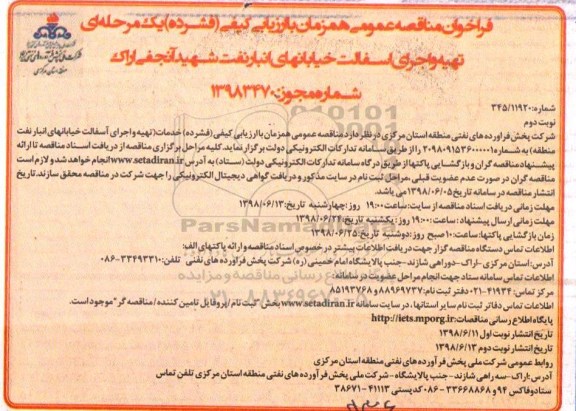 فراخوان مناقصه عمومی همزمان با ارزیابی کیفی (فشرده) یک مرحله‌ای
تهیه و اجرای آسفالت خیابانهای انبار نفت شهید آنجفی اراک
شماره مجوز: ۱۳۹۸۳۴۷۰
شماره: ۳۴۵/۱۱۹۲۰
نوبت دوم
شرکت پخش فراورده های نفتی منطقه استان مرکزی در نظر دارد مناقصه عمومی همزمان با ارزیابی کیفی (فشرده) خدمات (تهیه و اجرای آسفالت خیابانهای انبار نفت
منطقه) به شماره ۲۰۹۸۰۹۱۵۳۶۰۰۰۰۰۱ را از طریق سامانه تدارکات الکترونیکی دولت برگزار نماید. کلیه مراحل برگزاری مناقصه از دریافت اسناد مناقصه تا ارائه
پیشنهاد مناقصه گران و بازگشایی پاکتها از طریق درگاه سامانه تدارکات الکترونیکی دولت (ستاد) به آدرس www.setadiran.ir انجام خواهد شد و لازم است
مناقصه گران در صورت عدم عضویت قبلی، مراحل ثبت نام در سایت مذکور و دریافت گواهی دیجیتال الکترونیکی را جهت شرکت در مناقصه محقق سازند. تاریخ
انتشار مناقصه در سامانه تاریخ ۱۳۹۸/۰۶/۰۵ می باشد.
مهلت زمانی دریافت اسناد مناقصه از سایت: ساعت ۱۹:۰۰ روز: چهارشنبه تاریخ: ۱۳۹۸/۰۶/۱۳
مهلت زمانی ارسال پیشنهاد: ساعت: ۱۹:۰۰ روز: یکشنبه تاریخ: ۱۳۹۸/۰۶/۲۴
زمان بازگشایی پاکتها: ساعت: ۱۰ صبح روز: دوشنبه تاریخ: ۱۳۹۸/۰۶/۲۵
اطلاعات تماس دستگاه مناقصه گزار جهت دریافت اطلاعات بیشتر در خصوص اسناد مناقصه و ارائه پاکتهای الف:
آدرس: استان مرکزی -اراک- دوراهی شازند- جنب پالایشگاه امام خمینی (ره) شرکت پخش فراورده های نفتی تلفن: ۳۳۴۹۳۳۱۰-۰۸۶
اطلاعات تماس سامانه ستاد جهت انجام مراحل عضویت در سامانه:
مرکز تماس: ۴۱۹۳۴-۰۲۱ دفتر ثبت نام: ۸۸۹۶۹۷۳۷ و ۸۵۱۹۳۷۶۸
اطلاعات تماس دفاتر ثبت نام سایر استانها، در سایت سامانه www.setadiran.ir بخش "ثبت نام / پروفایل تامین کننده / مناقصه گر" موجود است.
پایگاه اطلاع رسانی مناقصات: http://iets.mporg.ir
تاریخ انتشار نوبت اول ۱۳۹۸/۶/۱۱
تاریخ انتشار نوبت دوم ۱۳۹۸/۶/۱۳
روابط عمومی شرکت ملی پخش فرآورده های نفتی منطقه استان مرکزی
آدرس: اراک- سه راهی شازند- جنب پالایشگاه - شرکت ملی پخش فرآورده های نفتی منطقه استان مرکزی تلفن تماس
ستاد و فاکس ۹۴ و ۳۳۶۶۸۸۶۸-۰۸۶ کدپستی ۴۱۱۱۳-۳۸۶۷۱
ParsNamadData